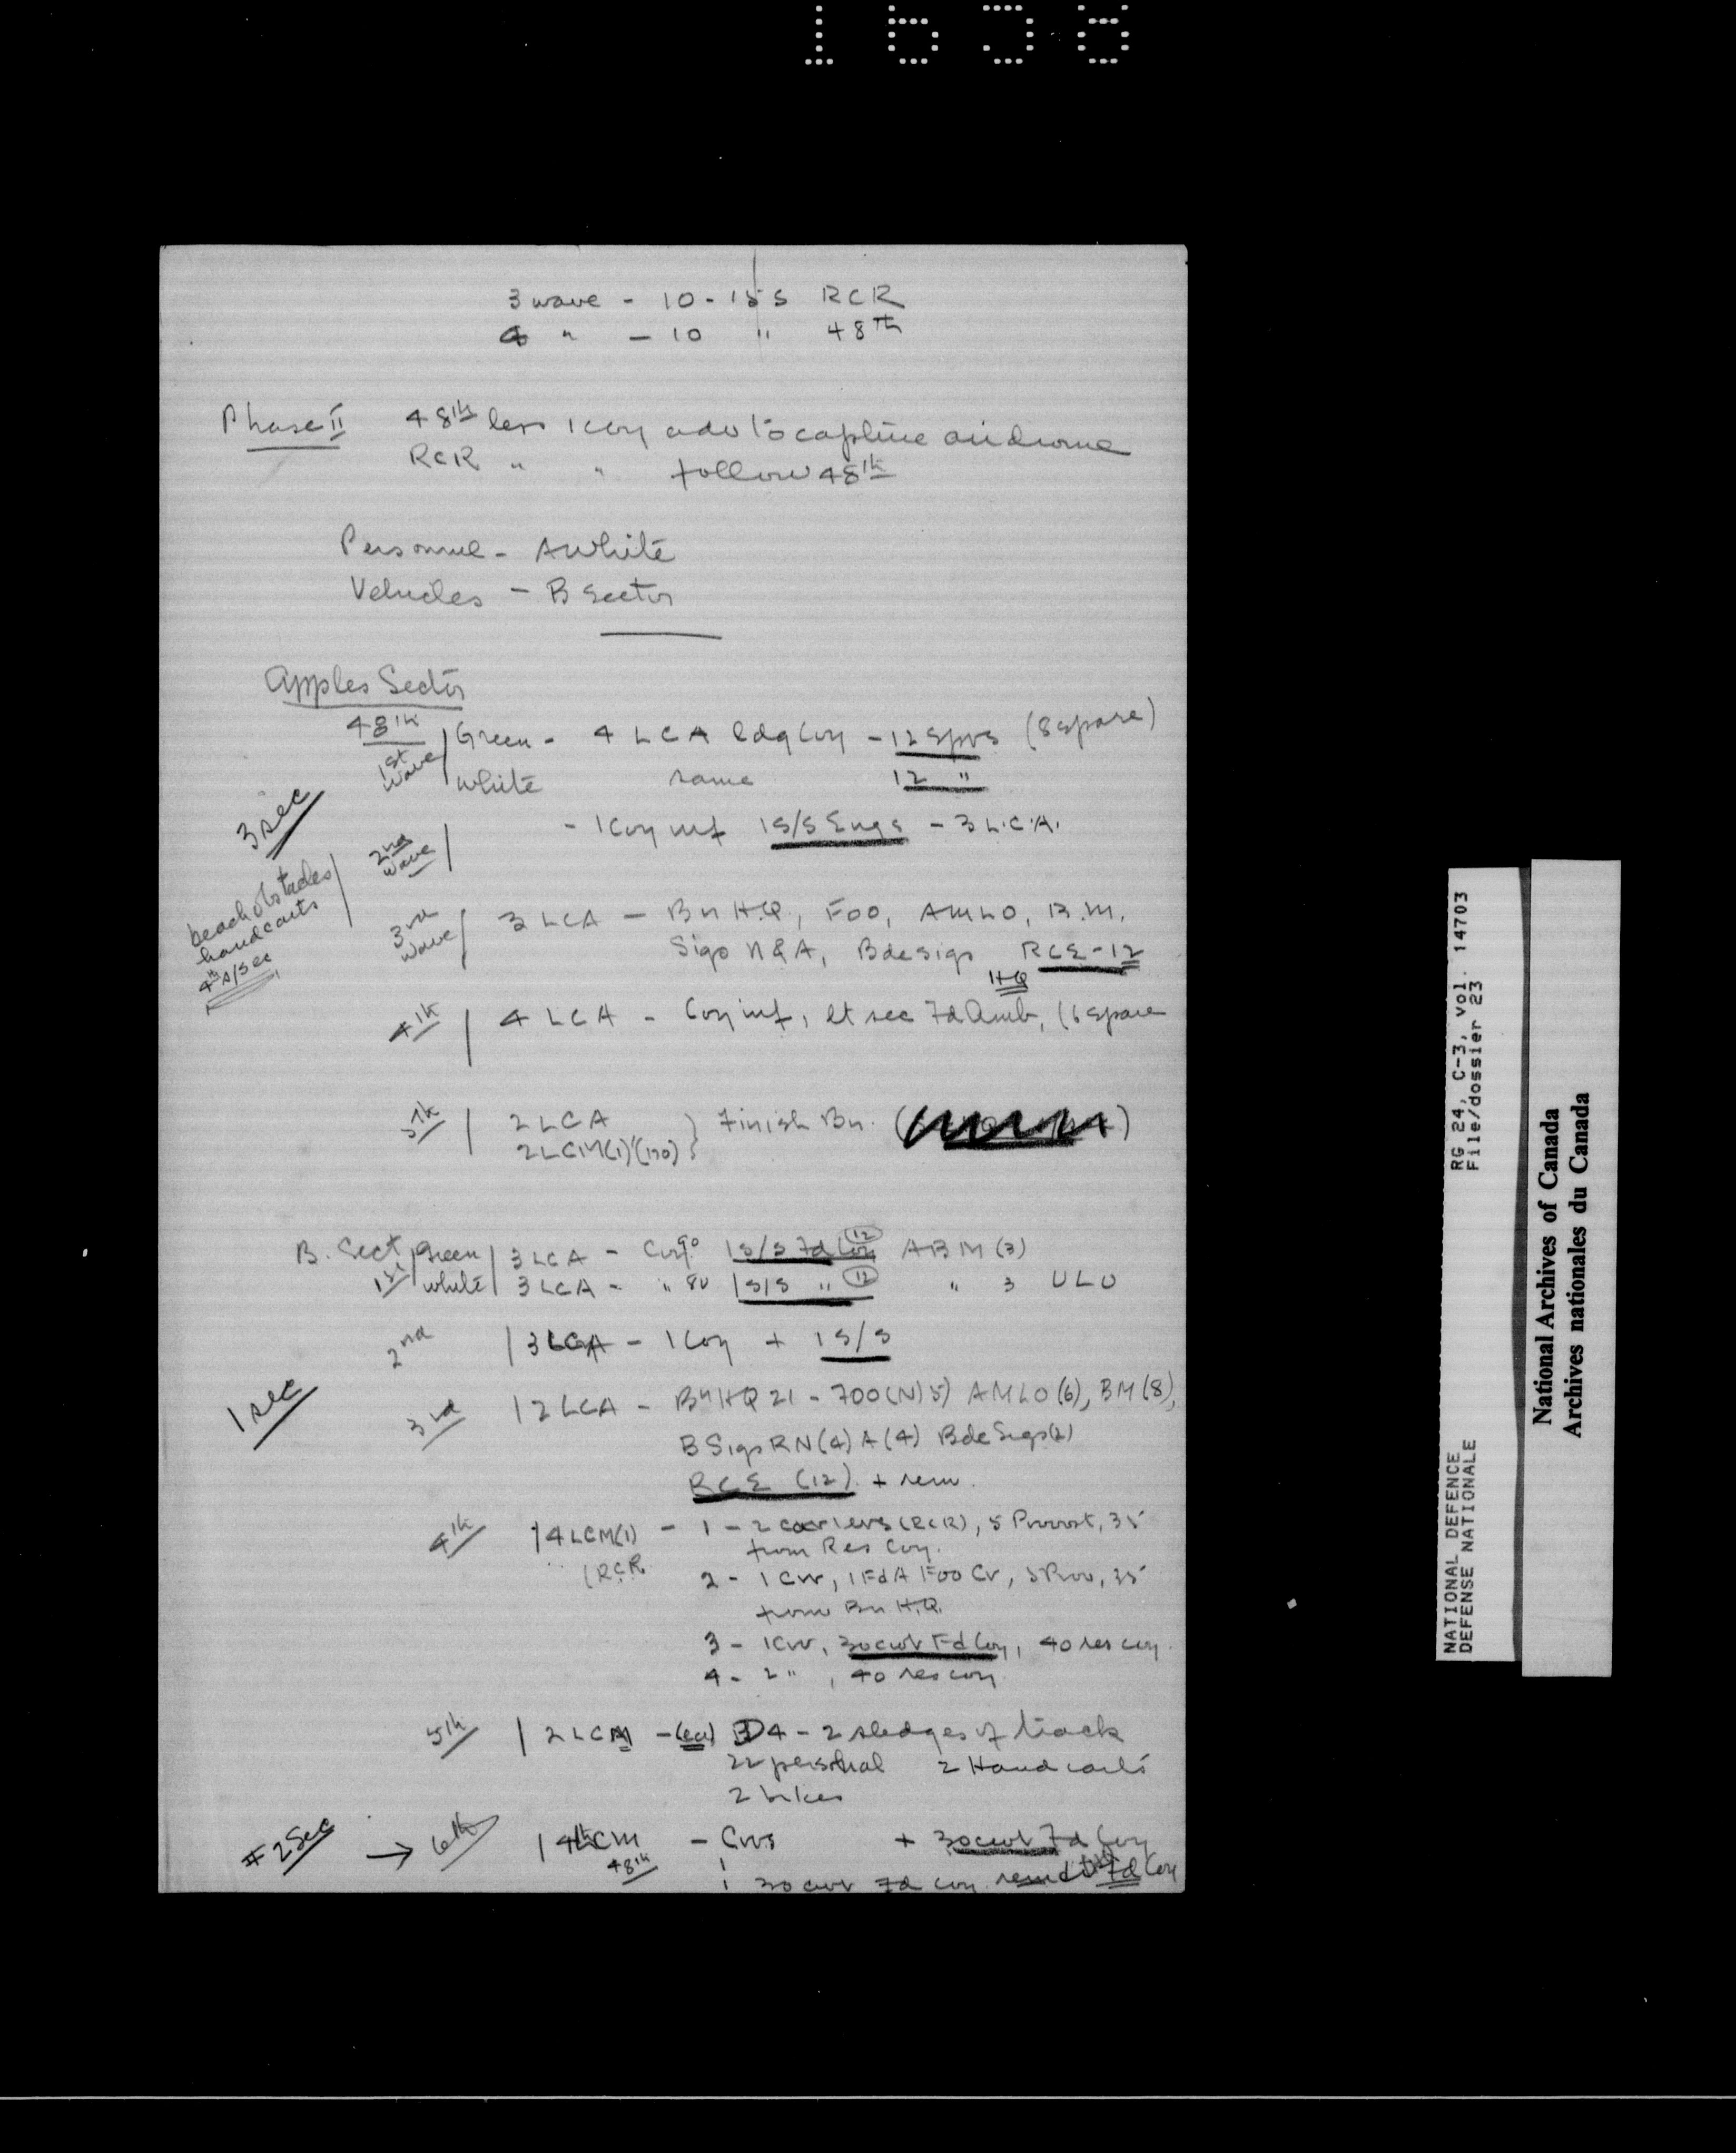 1656
3 wave - 10 - 15 S RCR
4 " - 10 " 48th
Phase II 48th less 1 coy adv to capture airdrome
RCR " " follow 48th
Personnel - A White
Vehicles - B Sector
Apples Sector
48th
1st wave Green - 4 LCA ldg Coy - 12 Sprs (8 spare)
White same 12 "
3 sec
2nd wave - 1 Coy inf 1 S/S Engs - 3 L.C.A.
beach obstacles
handcarts
4th S/Sec
3rd wave 3 LCA - Bn H.Q, FOO, AMLO, B.M.
Sigs N & A, Bde Sigs RCE - 12
HQ
4th 4 LCA - Coy inf, lt sec Fd Amb, (6 spare
5th 2 LCA } Finish Bn.
2 LCM(1) (120)
B. Sect 1st Green 3 LCA - Coy 90 1 S/S Fd Coy 12 ABM (3)
White 3 LCA - " 80 1 S/S " 12 " 3 ULO
2nd 3 LCA - 1 Coy + 1 S/S
1 sec
3rd 2 LCA - Bn HQ 21 - FOO (N) 5) AMLO (6), BM (8),
B Sigs RN (4) A (4) Bde Sigs (2)
RCE (12) + rem
4th 4 LCM(1) - 1 - 2 carriers (RCR), 5 Provost, 35
from Res Coy.
(RCR 2 - 1 Crr, 1 Fd A FOO Cr, 5 Prov, 35
from Bn H.Q.
3 - 1 Crr, 30 cwt Fd Coy, 40 res coy.
4 - 2 " , 40 res coy
5th 2 LCM - (ea) D4 - 2 sledges of track
22 personal 2 Handcarts
2 bikes
# 2 Sec → 6th 4 LCM - Crrs + 30 cwt Fd Coy
48th 1 30 cwt Fd Coy Fd Coy
RG 24, C-3, vol. 14703
File/dossier 23
NATIONAL DEFENCE
DEFENSE NATIONALE
National Archives of Canada
Archives nationales du Canada